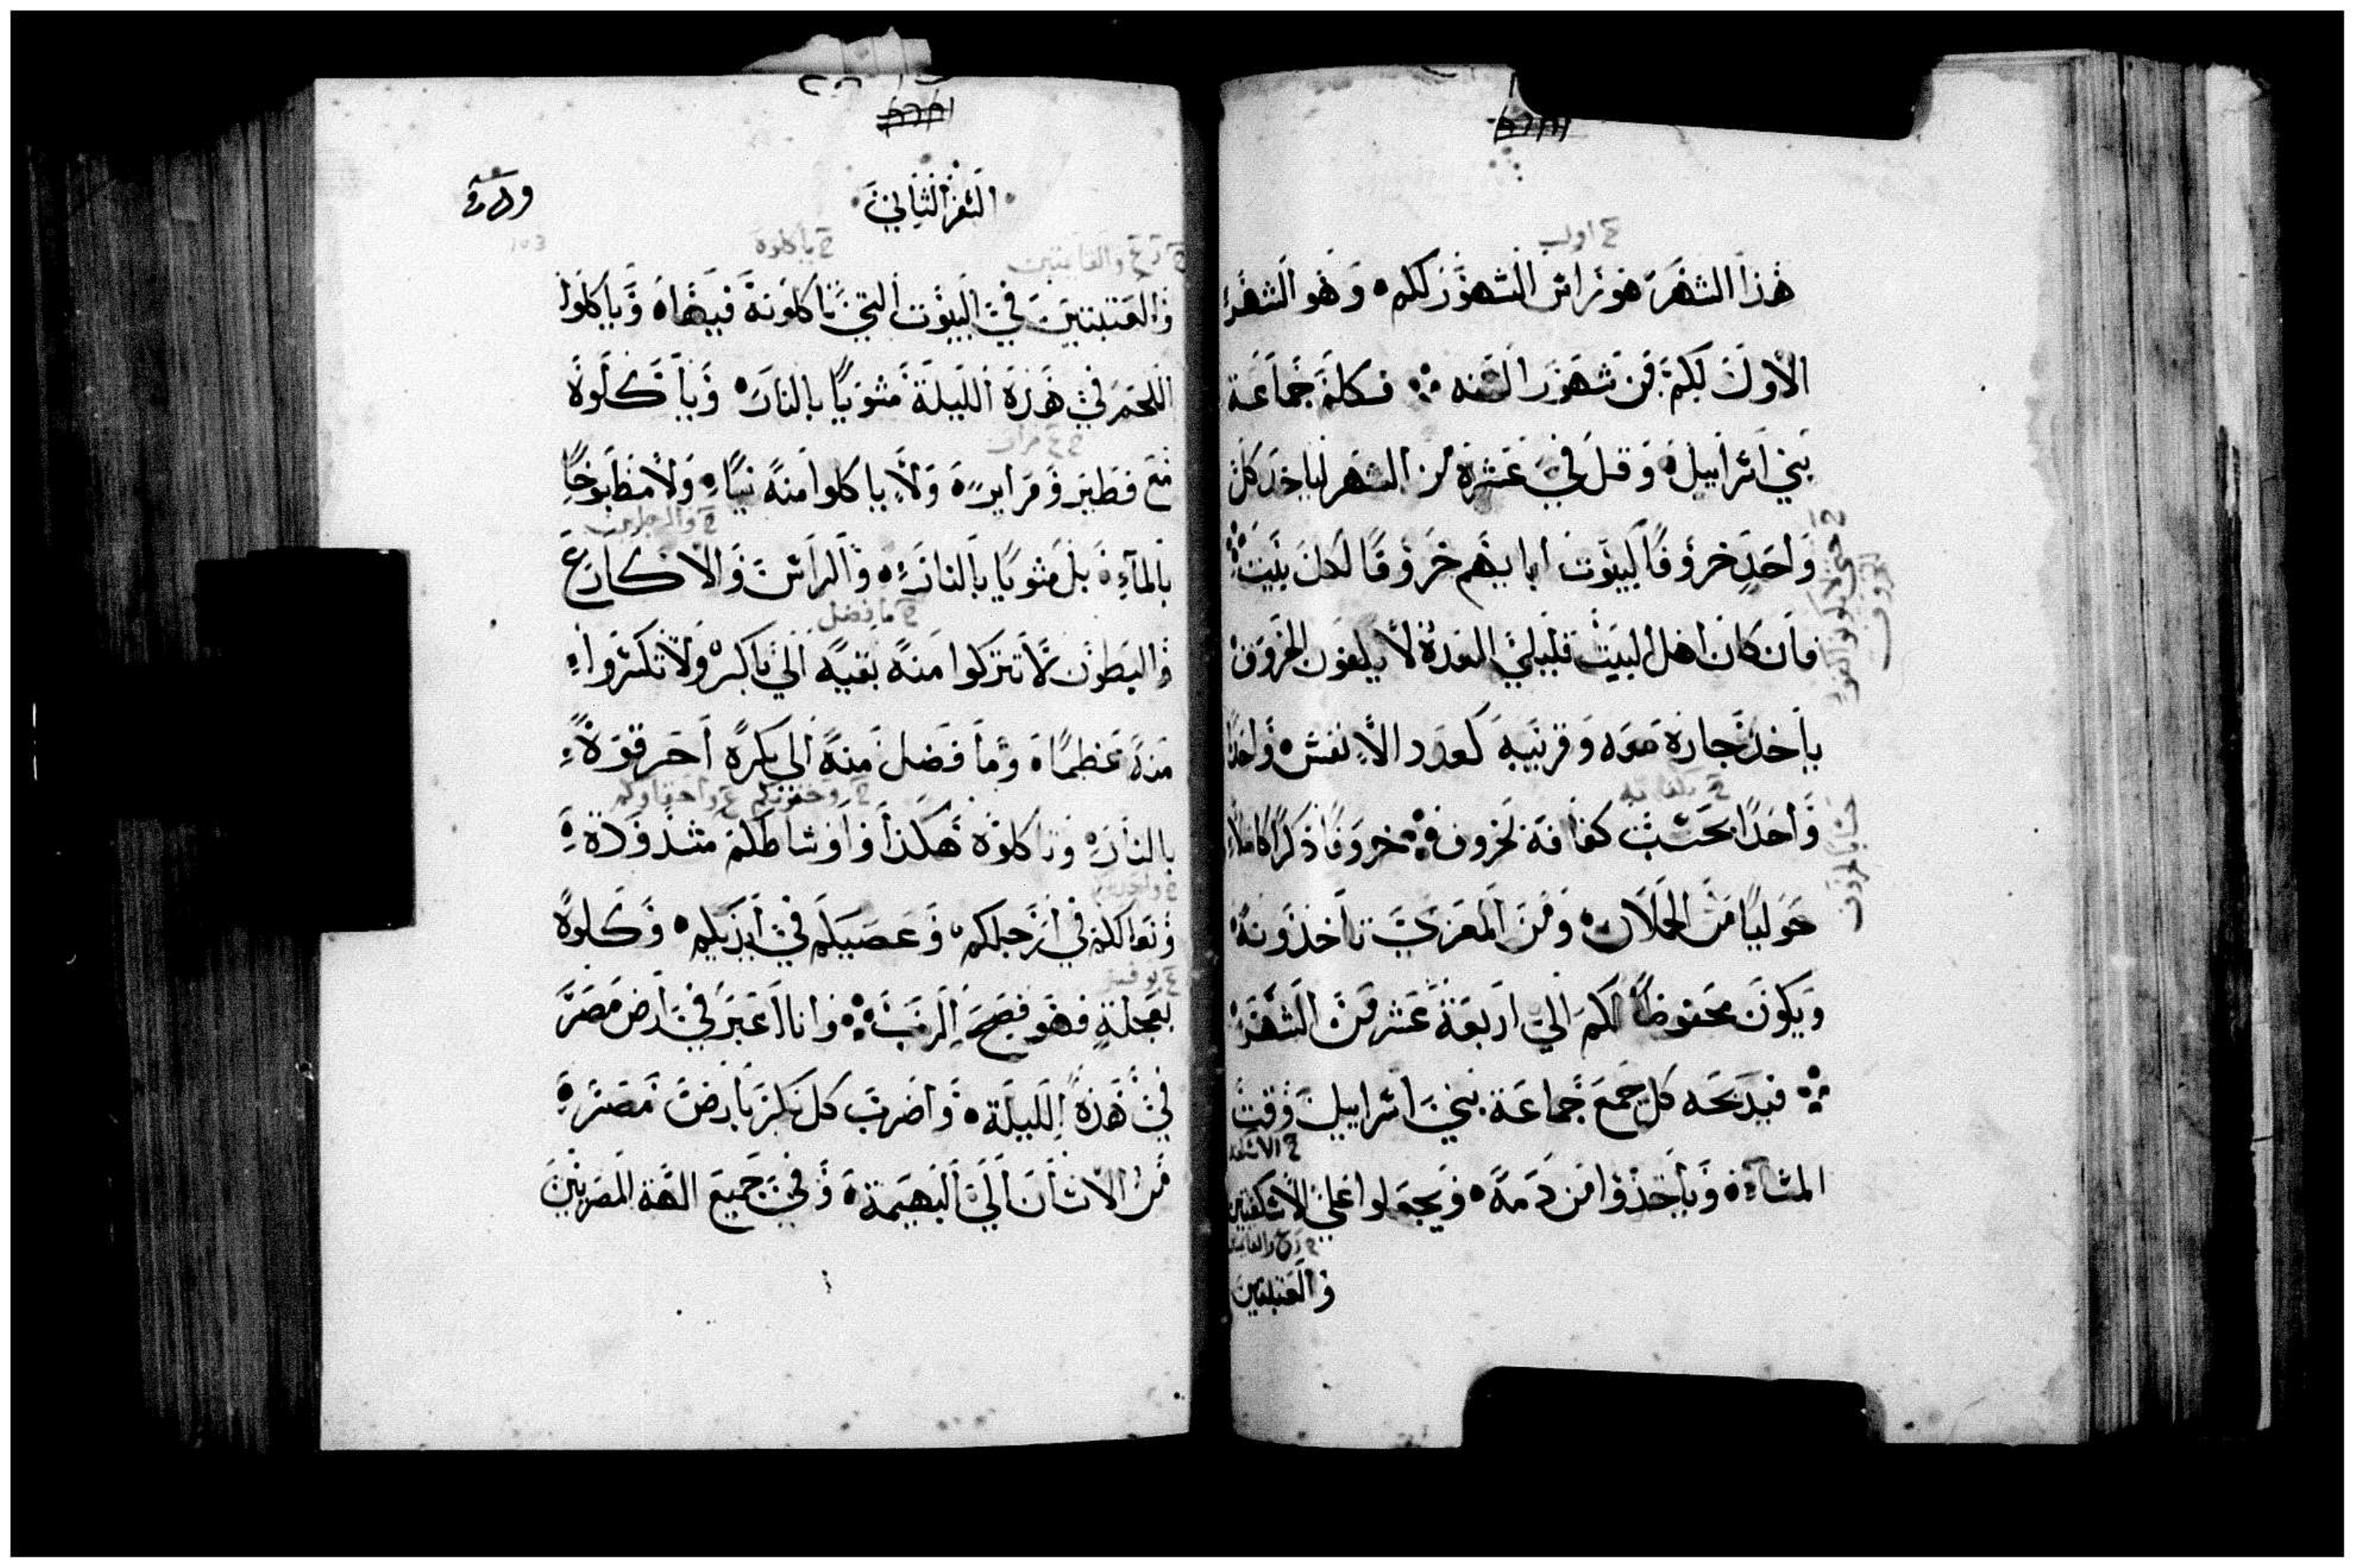 هذا الشهر هو راس الشهور لكم وهو الشهر
الاول لكم من شهور السنه فكلم جماعة
بني اسراييل وقل في عشرة من الشهر لياخد كل
واحد خروفا لبيوت ابايهم خروفا لكل بيت
فان كان اهل البيت قليلي العدة لا يلغون الخروف
ياخد جاره معه وقريبه كعدد الانفس واحدا
واحدا بحسب كفافه لخروف خروفا ذكرا كاملا
حوليا من الحملان ومن المعزي تاخذونه
ويكون محفوظا لكم الي اربعة عشر من الشهر
فيدبحه كل جمع جماعة بني اسراييل وقت
المساء وياخذوا من دمه ويجعلوا علي الاسكفتين
والعتبتين
السفر الثاني
والعتبتين في البيوت التي ياكلونه فيها وياكلوا
اللحم في هذه الليلة مشويا بالنار وياكلوه
مع فطير ومراير ولا ياكلوا منه نيا ولا مطبوخا
بالماء بل مشويا بالنار والراس والاكارع
والبطون لا تتركوا منه بقيه الي باكر ولا تكسروا
منه عظما وما فضل منه الي بكره احرقوه
بالنار وتاكلوه هكذا واوساطكم مشدوده
ونعالكم في ارجلكم وعصيكم في ايديكم وكلوه
بعجلة فهو فصح الرب وانا اعبر في ارض مصر
في هذه الليلة واضرب كل بكر بارض مصر
من الانسان الي البهيمة وفي جميع الهة المصريين